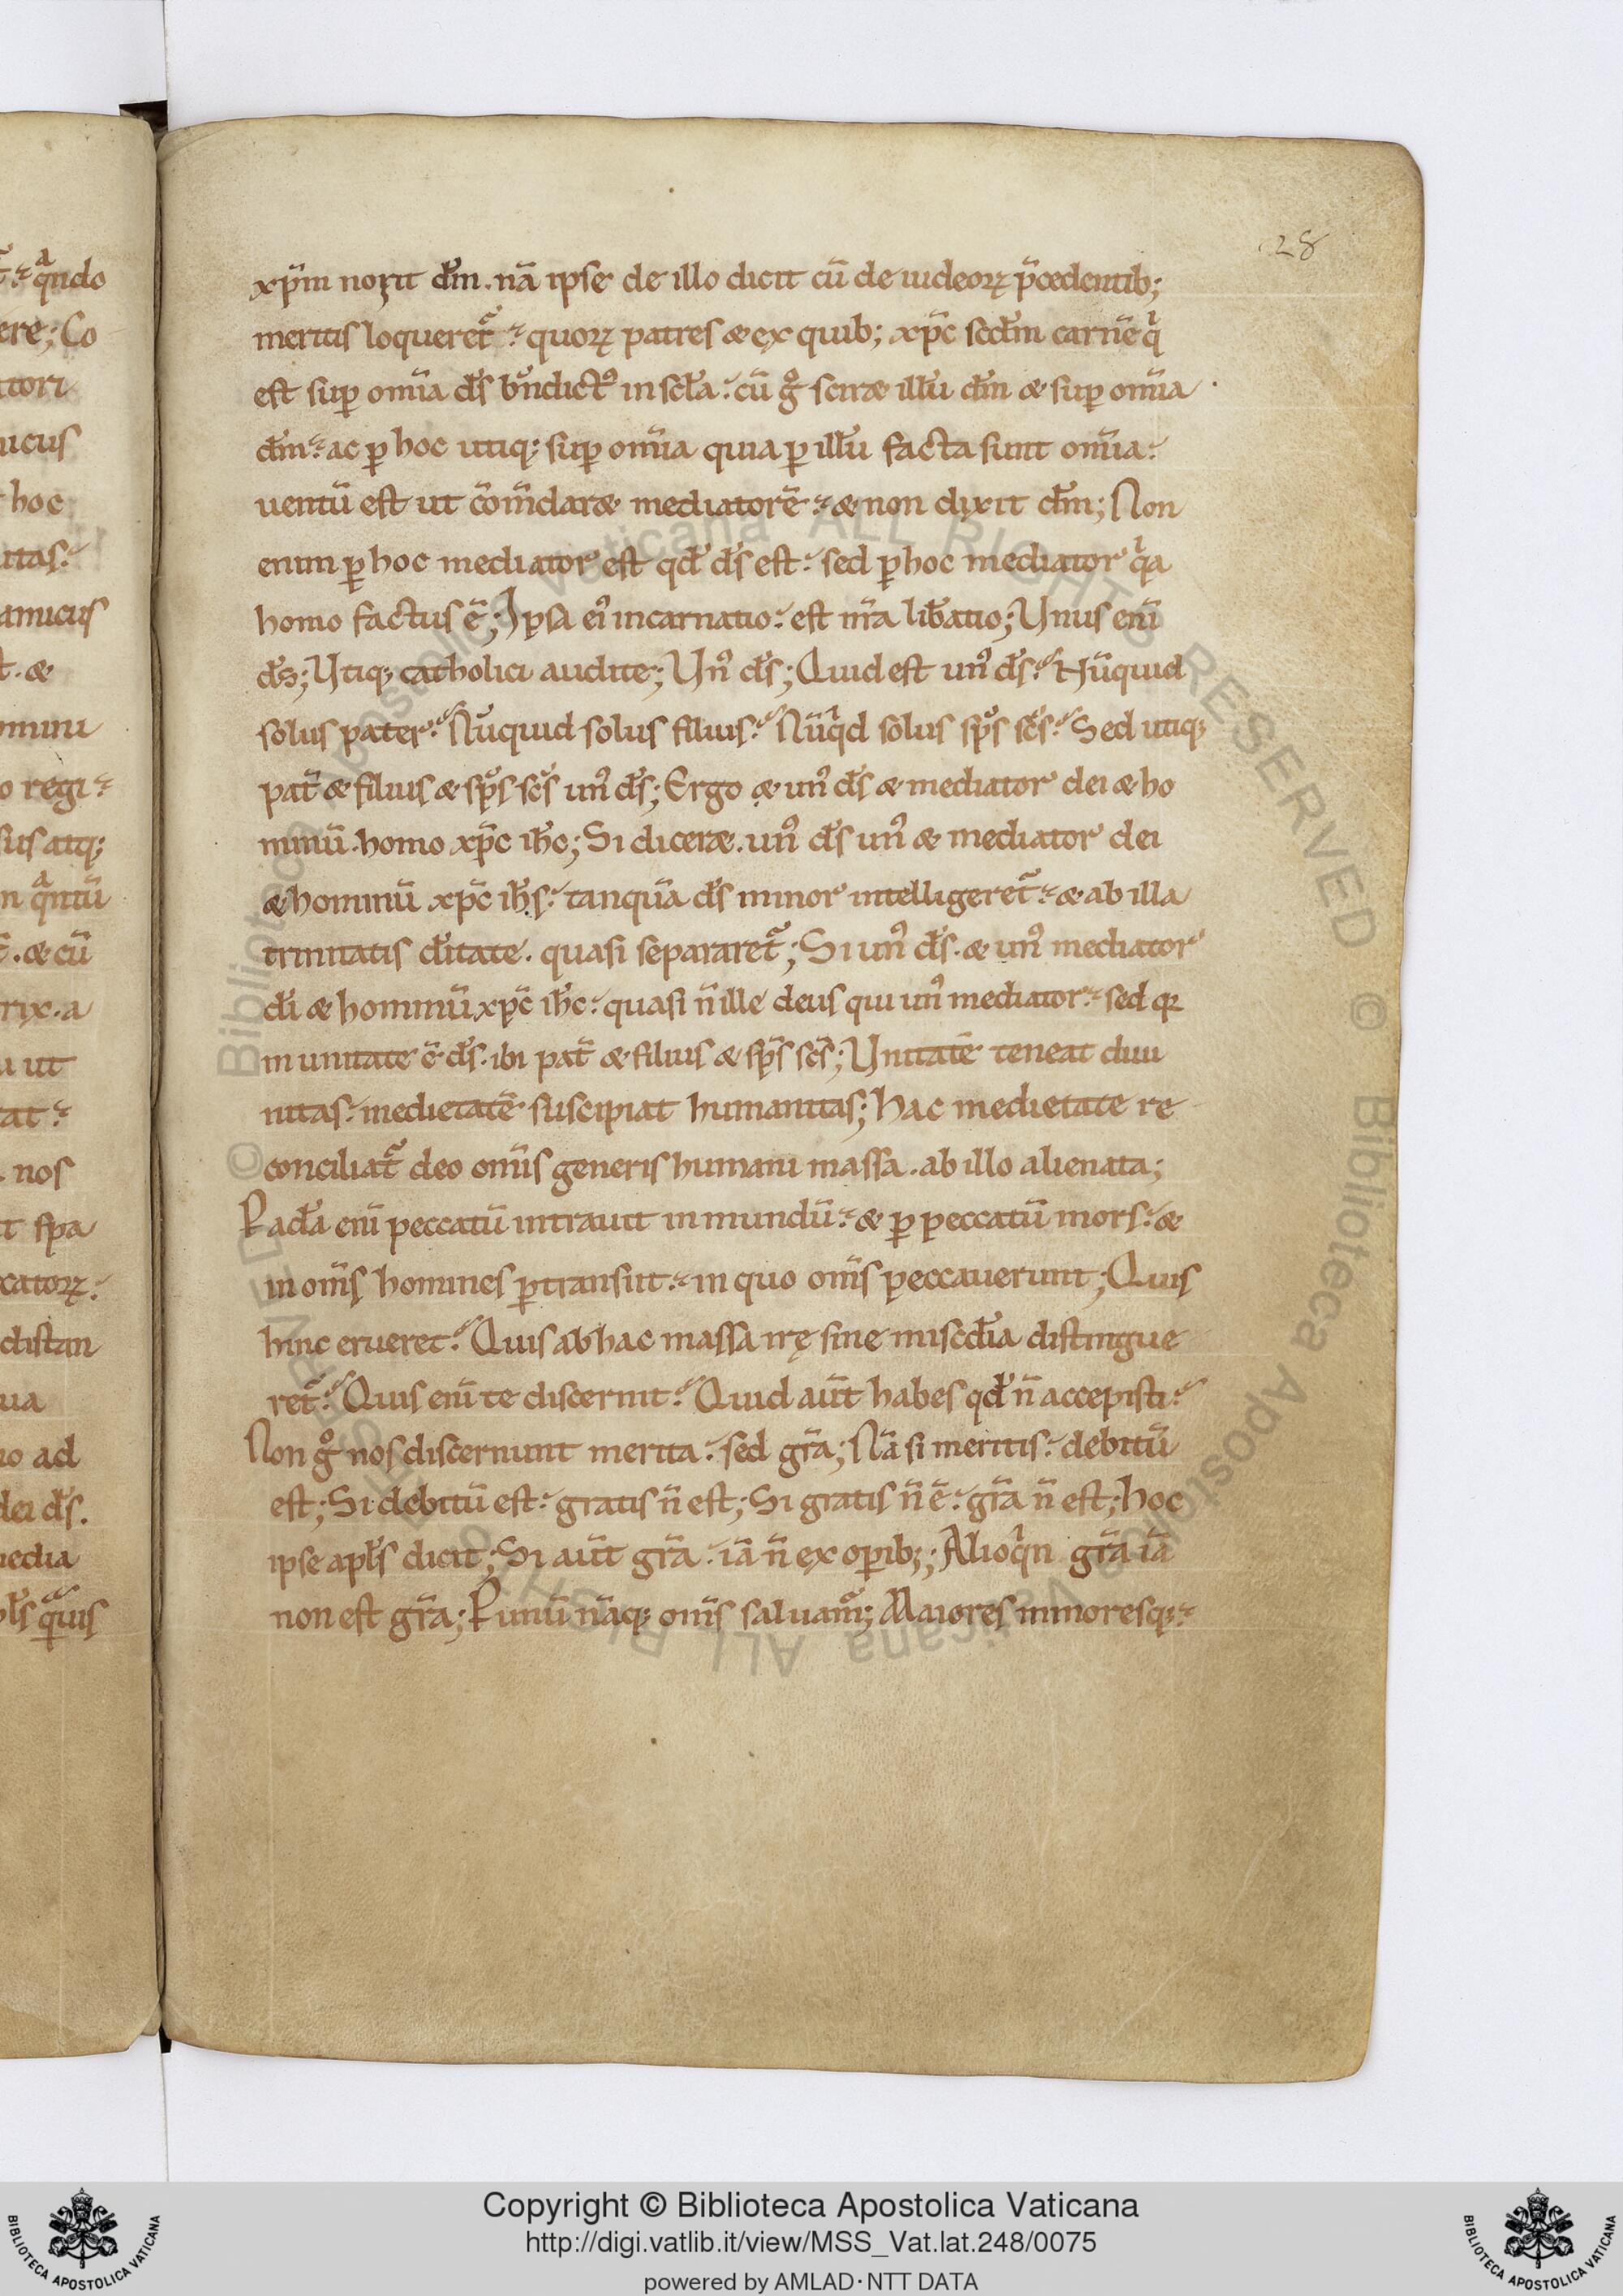 28
xp̄m nozit dm̄. nā ipse de illo dicit cū de iudeoꝝ p̄cedentib;
meritis loqueret̄ quoꝝ patres & ex quib; xp̄c scd̄m carnē qⁱ
est sup omīa ds̄ bn̄dictꝰ in scl̄a. cū gͦ scir& illū dm̄ & sup omīa
dm̄. ac ꝑ hoc utiq; sup omīa quia ꝑ illū facta sunt omīa.
uentū est ut cōm̄dar& mediatorē. & non dixit dm̄; Non
enim ꝑ hoc mediator est qd̄ ds̄ est. sed ꝑ hoc mediator qⁱa
homo factus ē; Ipsa ei̓ incarnatio. est nr̄a lib̄atio; Unus enī
ds̄; Utiq; catholici audite; Unꝰ ds̄; Quid est unꝰ ds̄? Nūquid
solus pater? Nūquid solus filius? Nūqⁱd solus sps̄ scs̄? Sed utiq;
pat̄ & filius & sps̄ scs̄ unꝰ ds̄; Ergo & unꝰ ds̄ & mediator dei & ho
minū. homo xp̄c ih̄c; Si dicer&. unꝰ ds̄ unꝰ & mediator dei
& hominū xp̄c ih̄s. tanquā ds̄ minor intelligeret̄. & ab illa
trinitatis d̄itate. quasi separaret̄; Si unꝰ ds̄. & unꝰ mediator
dī & hominū xp̄c ih̄c. quasi n̄ ille deus qui unꝰ mediator. sed qꝛ
in unitate ē ds̄. ibi pat̄ & filius & sps̄ scs̄; Unitatē teneat diui
nitas. medietatē suscipiat humanitas; hac medietate re
conciliat̄ deo omīs generis humani massa. ab illo alienata;
P ad̄a enī peccatū intrauit in mundū. & ꝑ peccatū mors. &
in om̄s homines ꝑtransiit. in quo om̄s peccauerunt; Quis
hinc erueret? Quis ab hac massa irę sine miscd̄ia distingue
ret̄? Quis enī te discernit? Quid aūt habes qd̄ n̄ accepisti?
Non gͦ nos discernunt merita. sed gr̄a; Nā si meritis. debitū
est; Si debitū est. gratis n̄ est; Si gratis n̄ ē. gr̄a n̄ est; hoc
ipse apls̄ dicit; Si aūt gr̄a. iā n̄ ex oꝑib;; Alioqⁱn gr̄a iā
non est gr̄a; P unū nāq; om̄s saluam̄; Maiores minoresq;
Copyright © Biblioteca Apostolica Vaticana
http://digi.vatlib.it/view/MSS_Vat.lat.248/0075
powered by AMLAD·NTT DATA
BIBLIOTECA APOSTOLICA VATICANA
BIBLIOTECA APOSTOLICA VATICANA